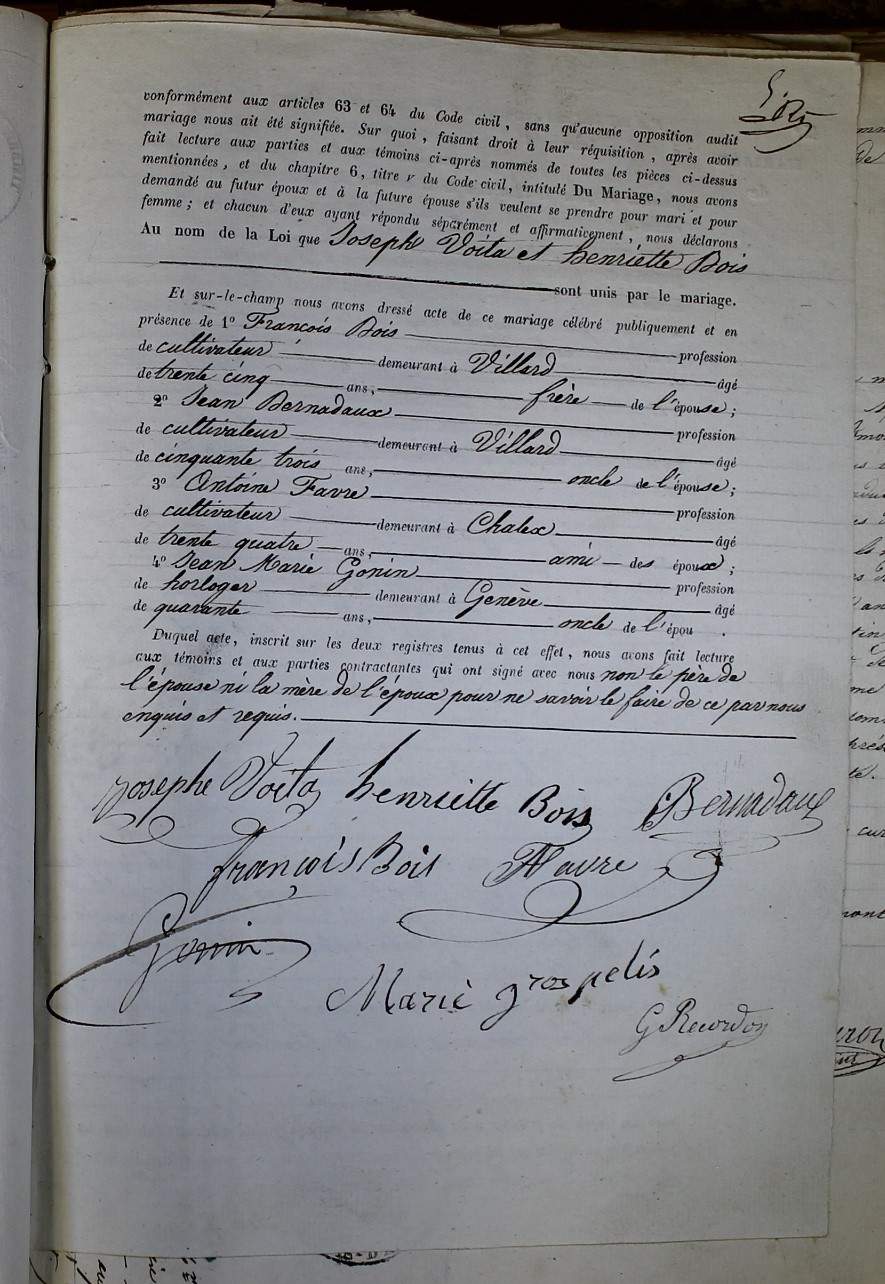 conformément aux articles 63 et 64 du Code civil, sans qu'aucune opposition audit
mariage nous ait été signifiée. Sur quoi, faisant droit à leur réquisition, après avoir
fait lecture aux parties et aux témoins ci-après nommés de toutes les pièces ci-dessus
mentionnées, et du chapitre 6, titre v du Code civil, intitulé Du Mariage, nous avons
demandé au futur époux et à la future épouse s'ils veulent se prendre pour mari et pour
femme; et chacun d'eux ayant répondu séparément et affirmativement, nous déclarons
Au nom de la Loi que Joseph Voita et henriette Bois
sont unis par le mariage.
Et sur-le-champ nous avons dressé acte de ce mariage célébré publiquement et en
présence de 1° François Bois profession
de cultivateur demeurant à Villard âgé
de trente cinq ans, frère de l'épouse;
2° Jean Bernadaux profession
de cultivateur demeurant à Villard âgé
de cinquante trois ans, oncle de l'épouse;
3° Antoine Favre profession
de cultivateur demeurant à Chalex âgé
de trente quatre ans, ami des époux;
4° Jean Marie Gonin profession
de horloger demeurant à Genève âgé
de quarante ans, oncle de l'épou .
Duquel acte, inscrit sur les deux registres tenus à cet effet, nous avons fait lecture
aux témoins et aux parties contractantes qui ont signé avec nous non le père de
l'épouse ni la mère de l'époux pour ne savoir le faire de ce par nous
enquis et requis.
Josephe Voita henriette Bois Bernadaux
françois Bois Favre
Gonin
Marie grospelis
G Recordon